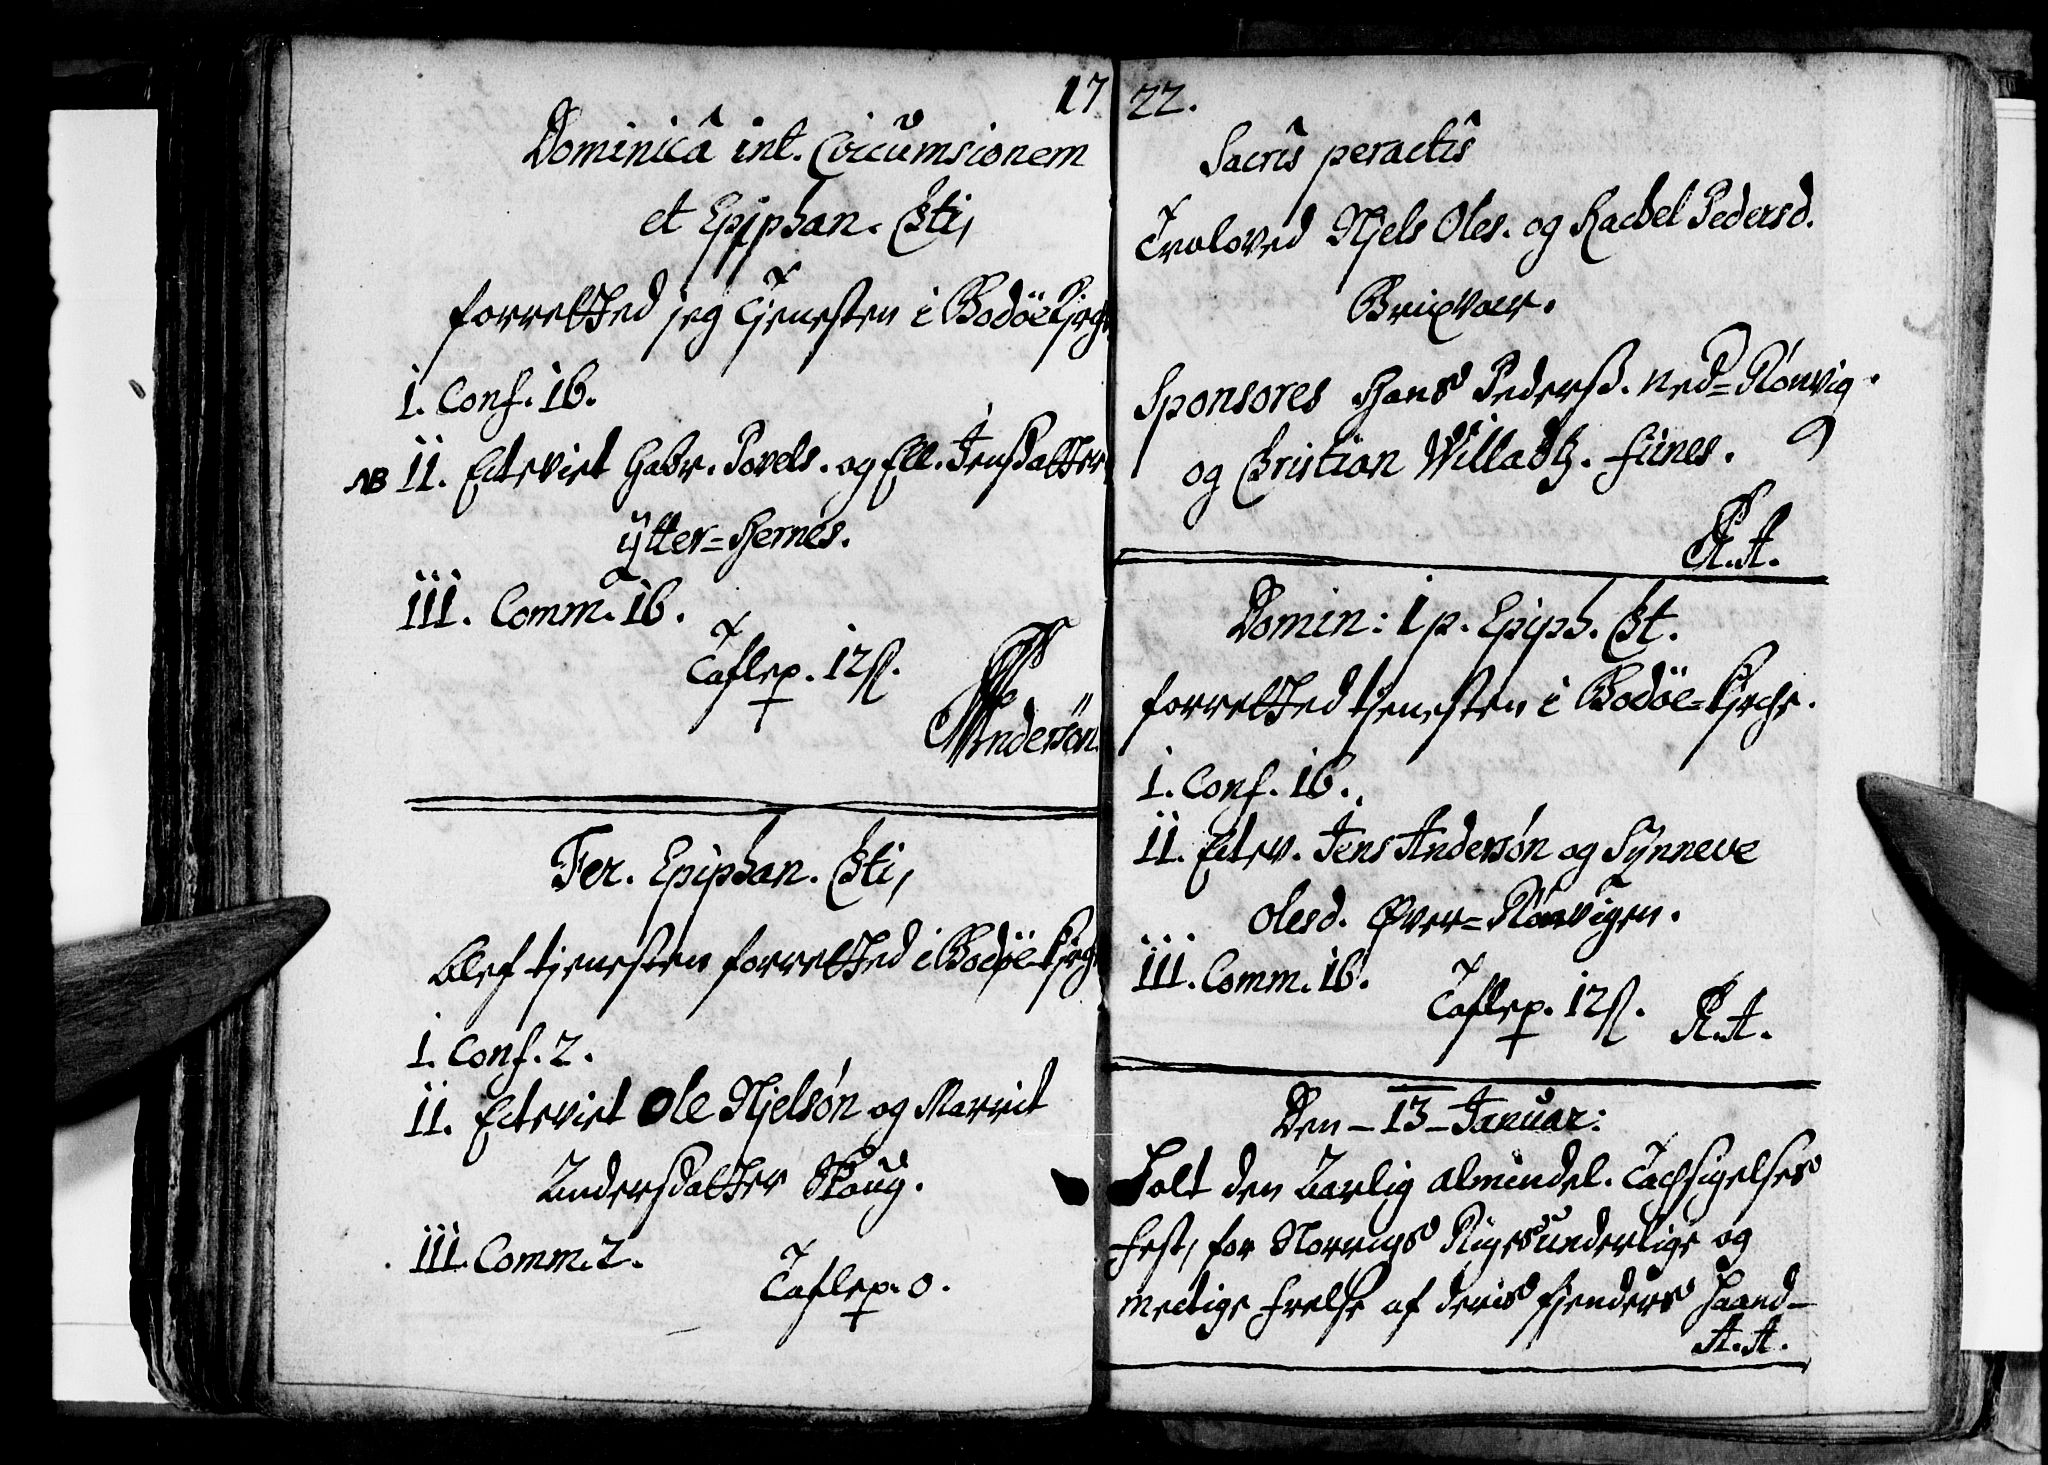 17
Dominicâ int. Circumsionem
et Epiphan. Xsti,
forrettted jeg Tjenesten i Bodöe Kirch
i. Conf. 16.
NB ii. Ecteviet Gabr. Povels. og Ell. Jensdatter
ÿtter=Hernes.
iii. Comm. 16.
Taflep. 12 ß.
Andersøn
Fer. Epiphan. Xsti,
blef tjenesten forretted i Bodöe Kirch
i. Conf. 2.
ii. Ecteviet Ole Njelsøn og Marrit
Andersdatter Skoug.
iii. Comm. 2.
Taflep. 0.
22.
Sacris peractis
Troloved Njels Oles. og Rachel Pedersd.
Brixvær.
Sponsores Hans Pederss. Ned=Rønvig.
og Christian Willadtz. Fines.
R. A.
Domin: 1 p. Epiph. Xst.
forretted tjenesten i Bodöe=Kirche.
i. Conf. 16.
ii. Ectev. Jens Andersøn og Synneve
Olesd. Øver=Rønvigen.
iii. Comm. 16.
Taflep. 12 ß. R. A.
Den – 13 – Januar:
Holt den aarlig almindel. Tachsigelses
fest, for Norrigs Riges underlige og
mectige frelse af deris fjenders Haand–
A. A.